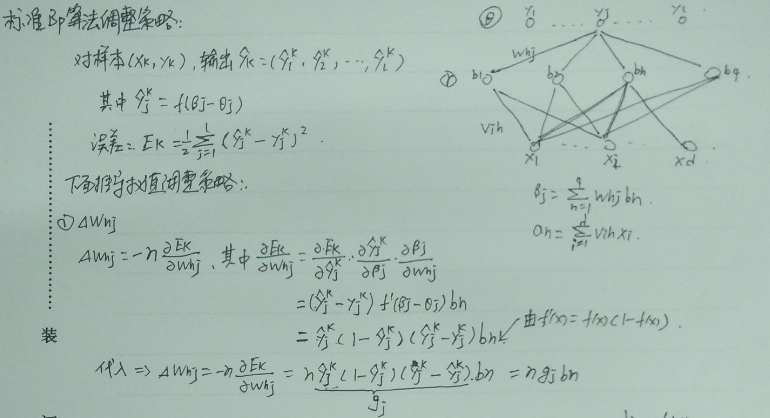 标准BP算法调整策略:
对样本(Xk,Yk),输出Ŷk=(ŷ₁ᵏ,ŷ₂ᵏ,…,ŷₗᵏ)
其中 ŷⱼᵏ=f(βj-θj)
误差: Ek=½∑ⱼ₌₁ˡ(ŷⱼᵏ-yⱼᵏ)²
下面推导权值调整策略:
①ΔWhj
ΔWhj=-η ∂Ek/∂Whj, 其中 ∂Ek/∂Whj = ∂Ek/∂ŷⱼᵏ · ∂ŷⱼᵏ/∂βj · ∂βj/∂Whj
=(ŷⱼᵏ-yⱼᵏ) f'(βj-θj) bh
=ŷⱼᵏ(1-ŷⱼᵏ)(ŷⱼᵏ-yⱼᵏ) bh
由f'(x)=f(x)(1-f(x)).
装
代入 => ΔWhj=-η ∂Ek/∂Whj = η ŷⱼᵏ(1-ŷⱼᵏ)(yⱼᵏ-ŷⱼᵏ).bh = η gj bh
gj
θ
Y1 …… Yj …… Yl
Whj
b1 b2 bh bq
Vih
X1 …… Xi Xd
βj=∑ₕ₌₁q Whj bh.
αh=∑ᵢ₌₁ᵈ Vih Xi.